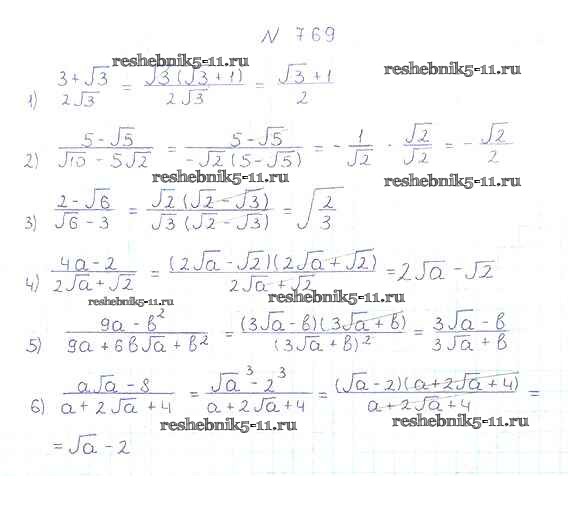 N 769
reshebnik5-11.ru
reshebnik5-11.ru
1) (3+√3)/(2√3) = (√3(√3+1))/(2√3) = (√3+1)/2
2) (5-√5)/(√10-5√2) = (5-√5)/(-√2(5-√5)) = -1/√2 · √2/√2 = -√2/2
reshebnik5-11.ru
reshebnik5-11.ru
3) (2-√6)/(√6-3) = (√2(√2-√3))/(√3(√2-√3)) = √(2/3)
4) (4a-2)/(2√a+√2) = ((2√a-√2)(2√a+√2))/(2√a+√2) = 2√a-√2
reshebnik5-11.ru
reshebnik5-11.ru
5) (9a-b²)/(9a+6b√a+b²) = ((3√a-b)(3√a+b))/(3√a+b)² = (3√a-b)/(3√a+b)
6) (a√a-8)/(a+2√a+4) = (√a³-2³)/(a+2√a+4) = ((√a-2)(a+2√a+4))/(a+2√a+4) =
reshebnik5-11.ru
reshebnik5-11.ru
= √a-2